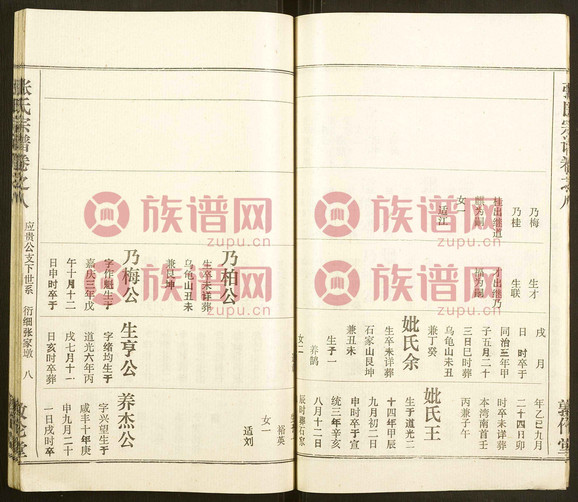 乃梅
乃桂
桂出继道
女一
适江
生才
生联
才出继乃
戌月
日时卒于
同治三年甲
子五月二十
三日巳时葬
乌龟山丑未
兼丁癸
妣氏余
生卒未详葬
石家山艮坤
兼丑未
生子一
养鹊
女二
年乙巳九月
二十四日卯
时卒未详葬
本湾南首壬
丙兼子午
妣氏王
生于道光二
十四年甲辰
九月初二日
申时卒于宣
统三年辛亥
八月十二日
裕英
女一
适刘
乃柏公
生卒未详葬
乌龟山丑未
兼艮坤
乃梅公
字作魁生于
嘉庆三年戊
午十月十二
日申时卒葬
生亨公
字绪均生于
道光六年丙
戌七月十一
日亥时卒葬
养杰公
字兴望生于
咸丰十年庚
申九月二十
一日戌时卒
张氏宗谱卷之八
应贵公支下世系 衍细张家墩 八
敦伦堂
族谱网
zupu.cn
族谱网
zupu.cn
族谱网
zupu.cn
族谱网
zupu.cn